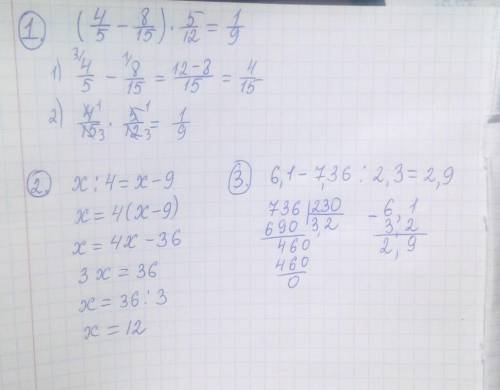 1. (4/5 − 8/15) · 5/12 = 1/9
1) ³⁾4/5 − ¹⁾8/15 = 12−8/15 = 4/15
2) 4¹/15₃ · 5¹/12₃ = 1/9
2. x : 4 = x − 9
x = 4(x−9)
x = 4x − 36
3x = 36
x = 36 : 3
x = 12
3. 6,1 − 7,36 : 2,3 = 2,9
736 | 230
690 | 3,2
460
460
0
− 6,1
3,2
2,9